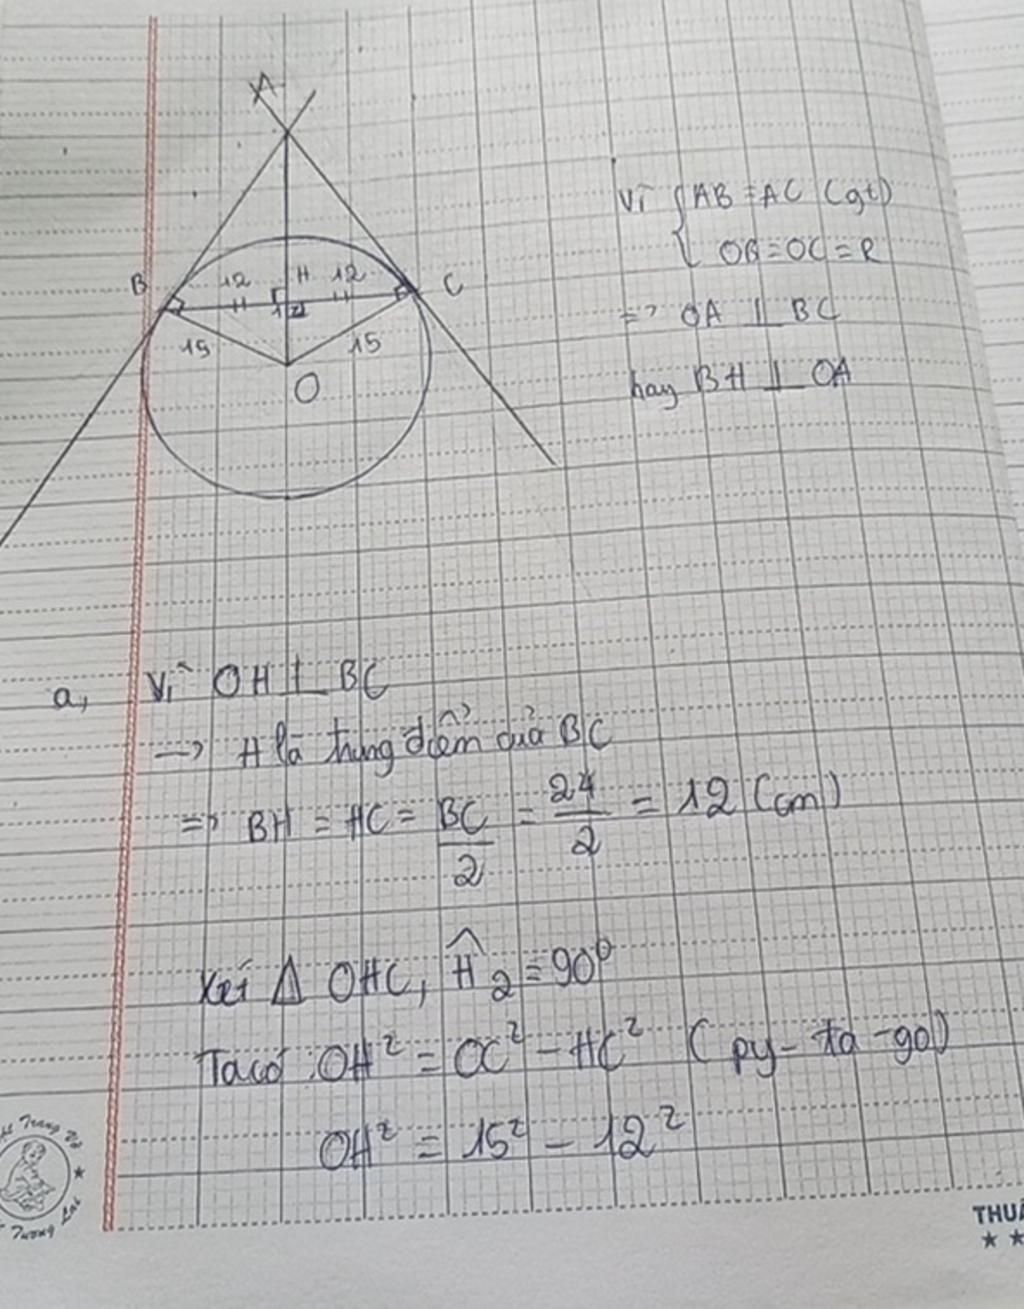 A
B
12
H
12
C
1
2
15
15
O
Vì { AB = AC (gt)
OB = OC = R
=> OA ⊥ BC
hay BH ⊥ OA
a, Vì OH ⊥ BC
-> H là trung điểm của BC
=> BH = HC = BC/2 = 24/2 = 12 (cm)
Xét Δ OHC, Ĥ₂ = 90⁰
Ta có : OH² = OC² - HC² (py-ta-go)
OH² = 15² - 12²
Trang Vở
Tương Lai
THUẬ